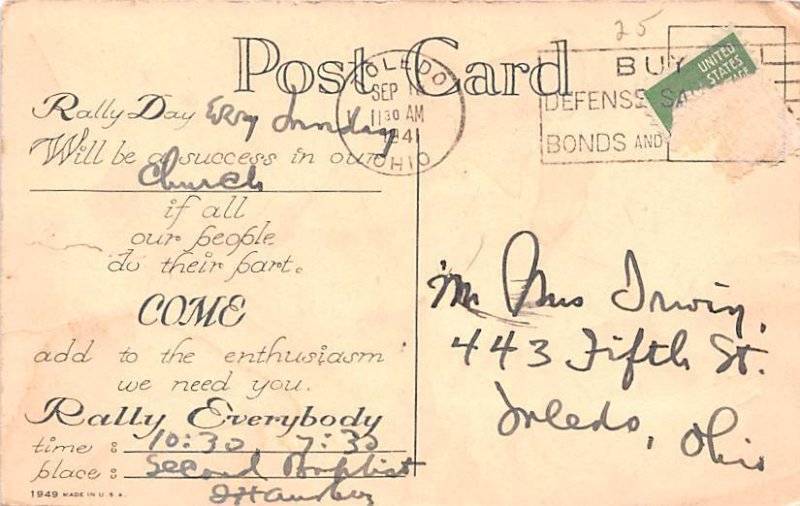 25
Post Card
TOLEDO
SEP
11 30 AM
1941
OHIO
BUY
DEFENSE SA
BONDS AND
UNITED
STATES
AGE
Rally Day Every Sunday
Will be a success in our
Church
if all
our people
do their part.
COME
add to the enthusiasm
we need you.
Rally Everybody
time : 10:30, 7:30
place : Second Baptist
1949 MADE IN U.S.A.
Mr Mrs Irwin,
443 Fifth St.
Toledo, Ohio